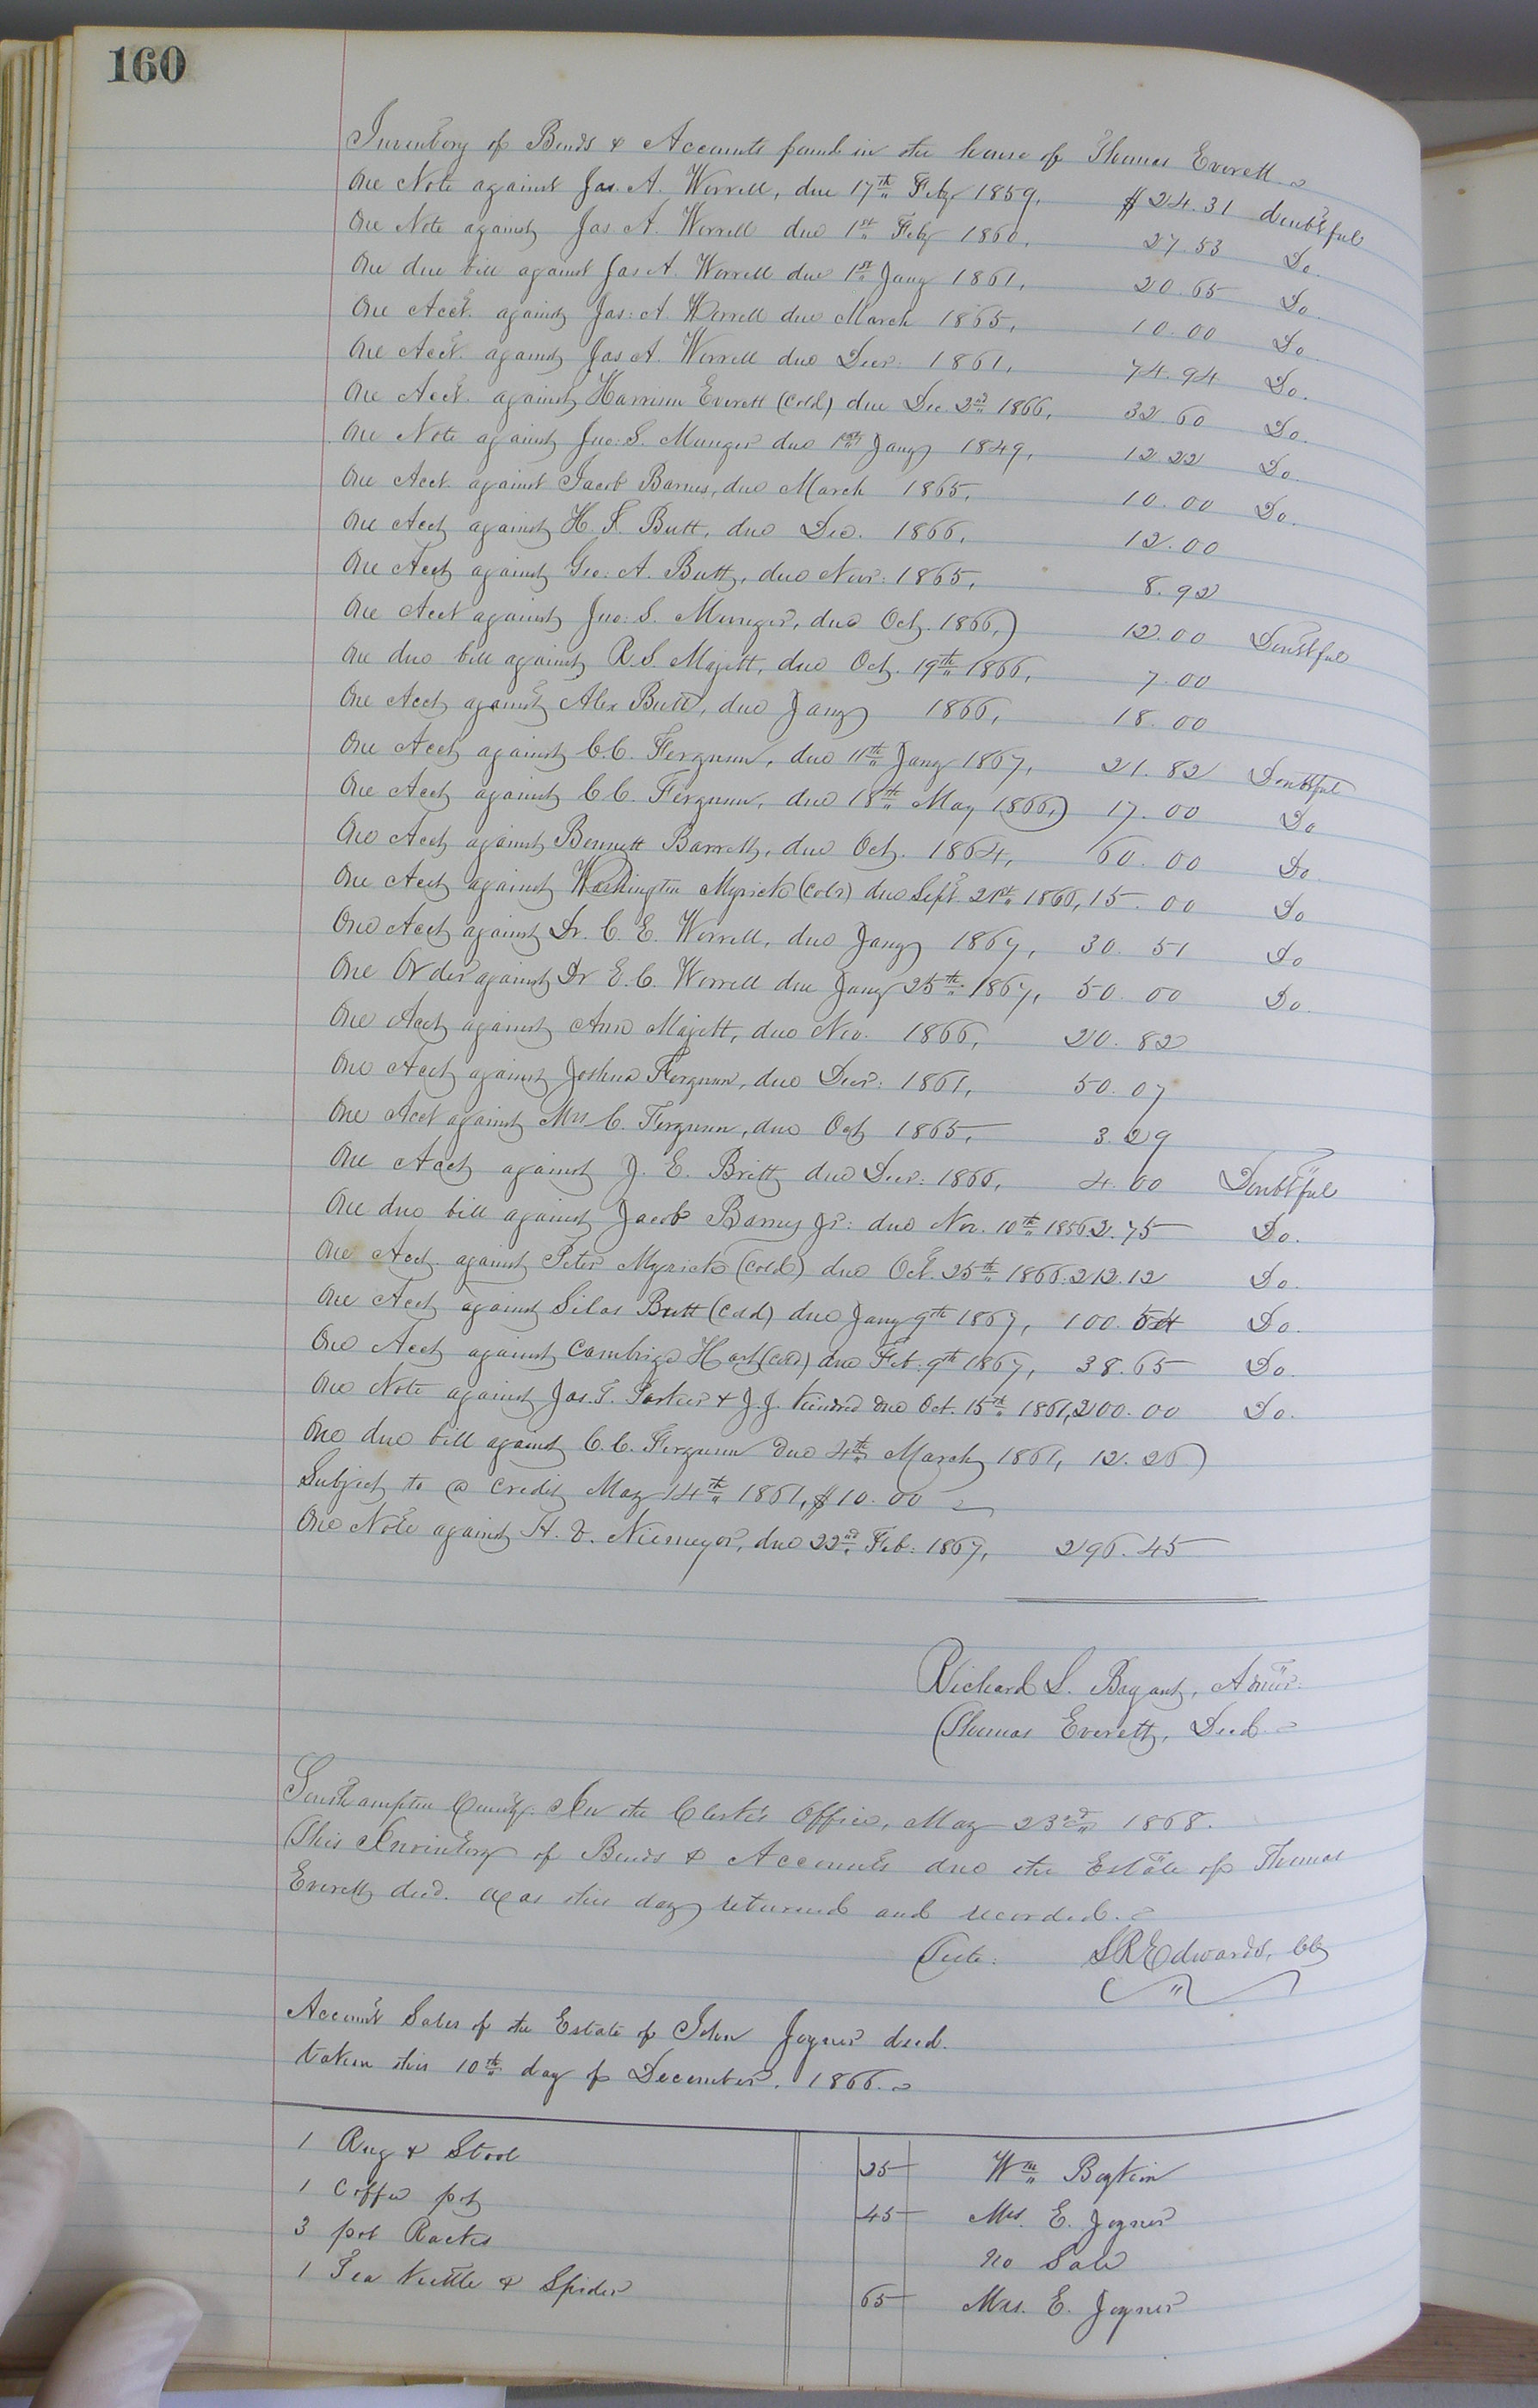 160
Inventory of Bonds & Accounts found in the house of Thomas Everett.
One Note against Jas. A. Worrell, due 17th Feby 1859, $24.31 doubtful
One Note against Jas. A. Worrell due 1st Feby 1860, 27.53 Do.
One due bill against Jas A. Worrell due 1st Jany 1861, 20.65 Do.
One Acct. against Jas: A. Worrell due March 1865, 10.00 Do.
One Acct. against Jas A. Worrell due Decr: 1861, 74.94 Do.
One Acct. against Harrison Everett (Cold) due Dec. 2nd 1866, 32.60 Do.
One Note against Jno: S. Munger due 1st Jany 1849, 12.22 Do.
One Acct. against Jacob Barnes, due March 1865, 10.00 Do.
One Acct against H. F. Butt, due Dec. 1866, 12.00
One Acct against Geo: A. Butt, due Novr: 1865, 8.92
One Acct against Jno: S. Munger, due Oct. 1866, 12.00 Doubtful
One due bill against R. S. Majett, due Oct. 19th 1866, 7.00
One Acct against Alex Butt, due Jany 1866, 18.00
One Acct against C. C. Ferguson, due 11th Jany 1867, 21.82 Doubtful
One Acct against C. C. Ferguson, due 18th May 1866, 17.00 Do
One Acct against Bennett Barrett, due Oct. 1864, 60.00 Do.
One Acct against Washington Myrick (Cold) due Sept. 21st 1866, 15.00 Do
One Acct against Dr. C. E. Worrell, due Jany 1867, 30.51 Do
One Order against Dr E. C. Worrell due Jany 25th 1867, 50.00 Do.
One Acct against Ann Majett, due Nov. 1866, 20.82
One Acct against Joshua Ferguson, due Decr: 1861, 50.07
One Acct against Mrs C. Ferguson, due Oct 1865, 3.29
One Acct against J. E. Britt due Decr: 1866, 4.00 Doubtful
One due bill against Jacob Barnes Jr: due Nov. 10th 1856 2.75 Do.
One Acct. against Peter Myrick (Cold) due Oct. 25th 1866. 212.12 Do.
One Acct against Silas Butt (Cold) due Jany 9th 1867, 100.54 Do.
One Acct against Cambrige Hart (Cold) due Feb: 9th 1867, 38.65 Do.
One Note against Jas. T. Parker & J. J. Kindred due Oct. 15th 1861, 200.00 Do.
One due bill against C. C. Ferguson due 4th March 1861, 12.26
Subject to a credit May 14th 1861, $10.00
One Note against H. V. Niemeyer, due 22nd Feb: 1867, 296.45
Richard S. Bryant, Admr.
Thomas Everett, Decd.
Southampton County. In the Clerk's Office, May 23rd 1868.
This Inventory of Bonds & Accounts due the Estate of Thomas
Everett decd. was this day returned and recorded.
Teste: L R Edwards, Clk
Account Sales of the Estate of John Joyner decd.
taken this 10th day of December, 1866.
1 Rug & Stool 25 Wm Boykin
1 Coffee pot 45 Mrs. E. Joyner
3 pot Racks no Sale
1 Tea Kettle & Spider 65 Mrs. E. Joyner